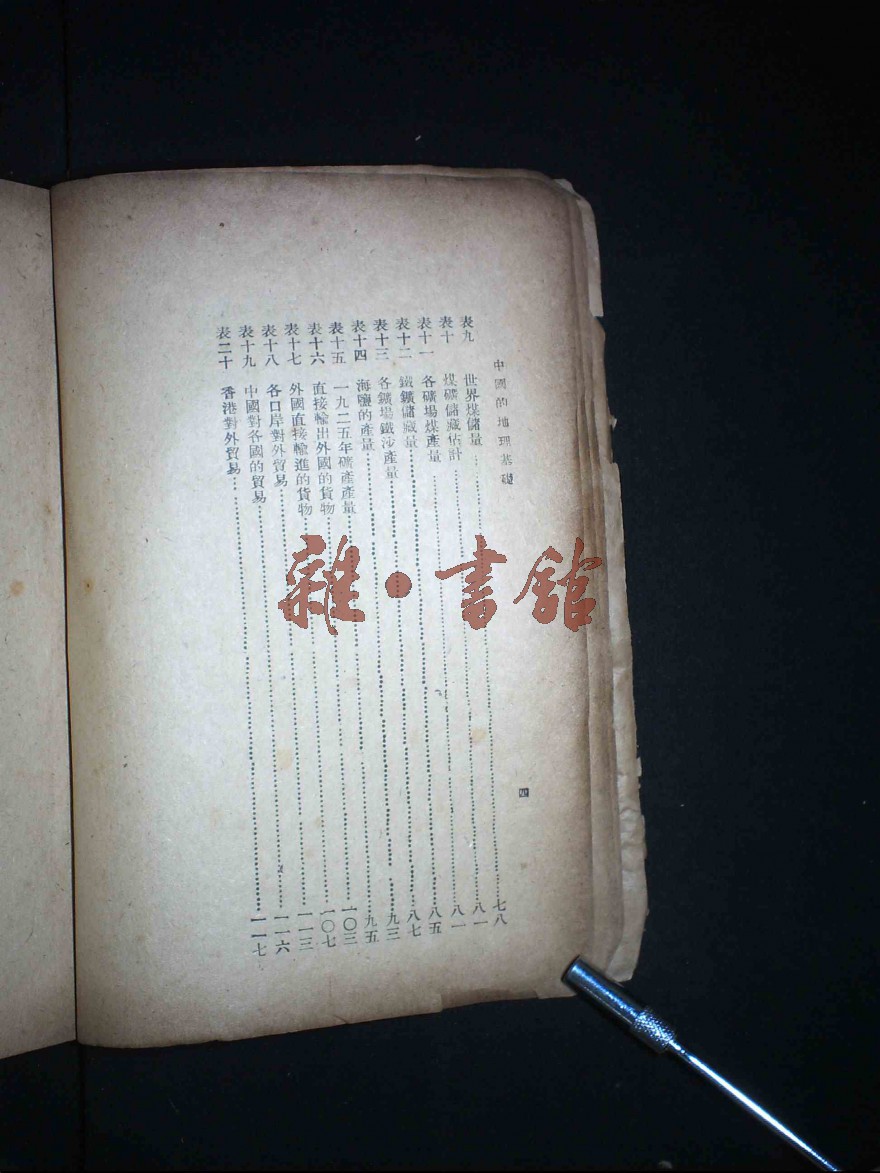 中國的地理基礎 四
表九 世界煤儲量……七八
表十 煤礦儲藏估計……八一
表十一 各礦場煤產量……八一
表十二 鐵鑛儲藏量……八五
表十三 各鑛場鐵沙產量……八七
表十四 海鹽的產量……九三
表十五 一九二五年礦產產量……九五
表十六 直接輸出外國的貨物……一〇三
表十七 外國直接輸進的貨物……一〇七
表十八 各口岸對外貿易……一一三
表十九 中國對各國的貿易……一一六
表二十 香港對外貿易……一一七
雜·書館